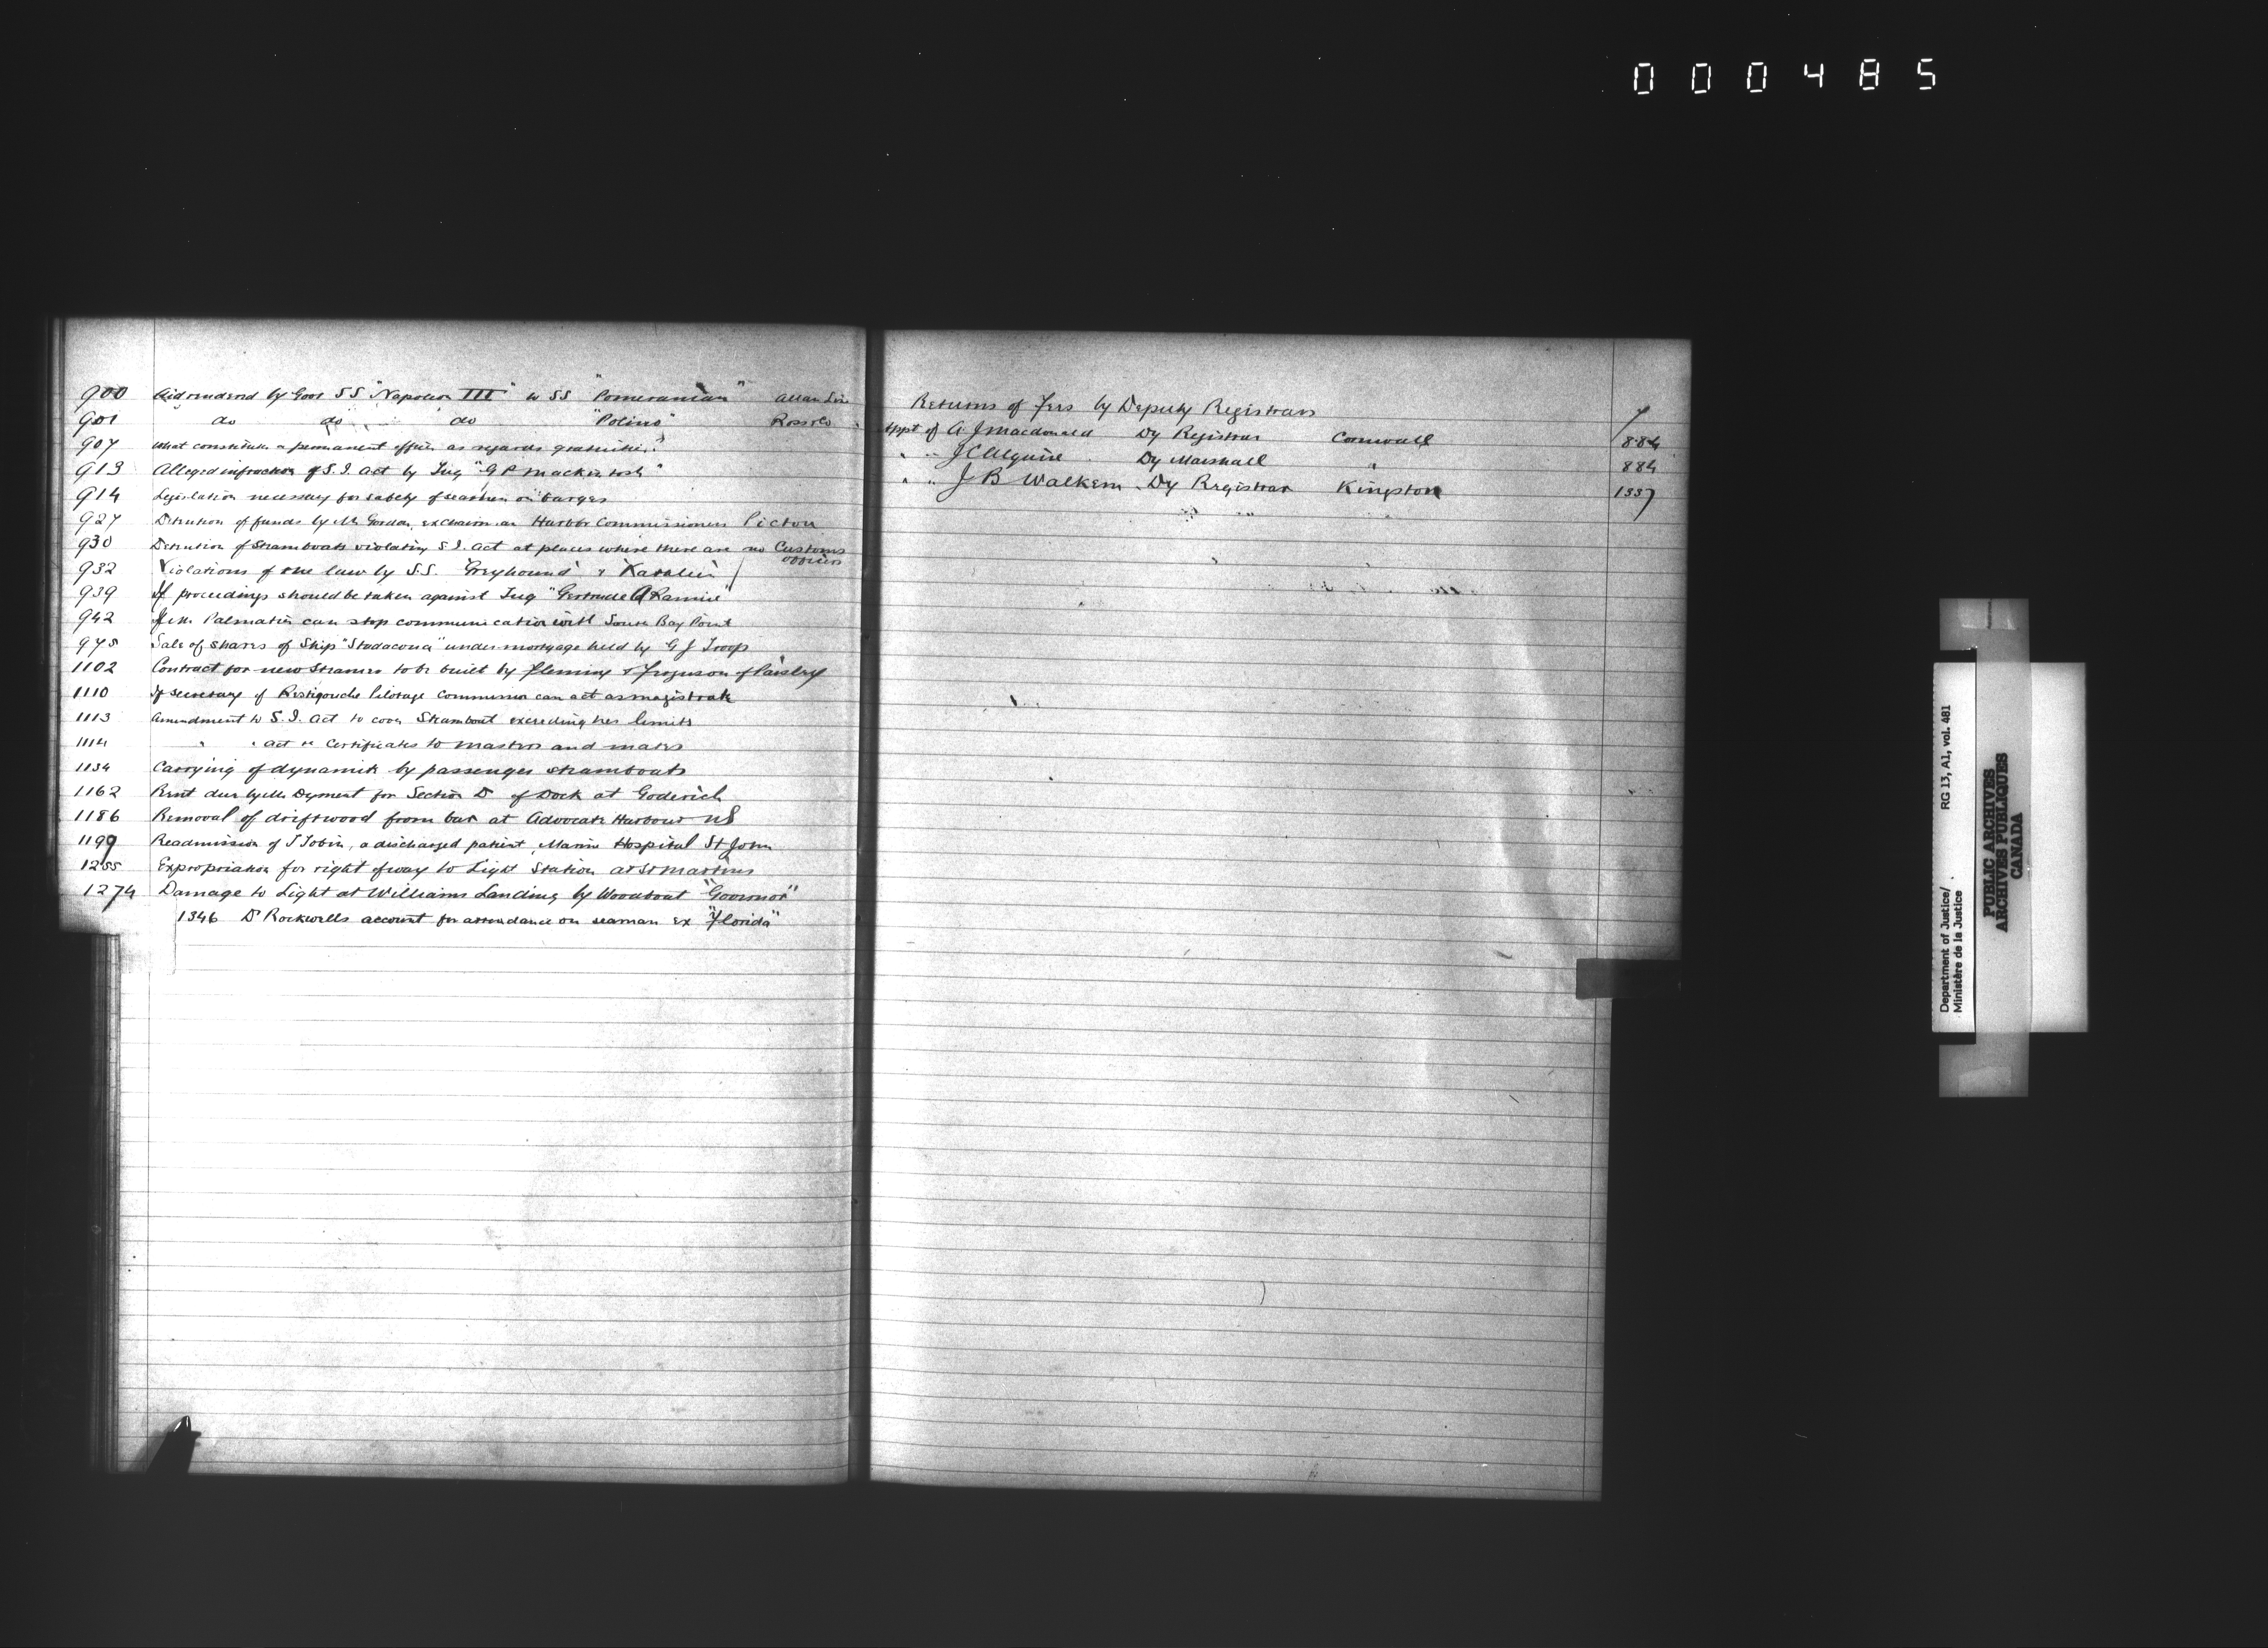 000485
900 Aid rendered by Govt SS "Napoleon III" to SS "Pomeranian" Allan Line
901 do do do "Polino" Ross & Co
907 What constitutes a permanent officer as regards gratuities
913 Alleged infraction of S.I. Act by Tug "G P Mackintosh"
914 Legislation necessary for safety of seamen on barges
927 Detention of funds by Mr Gordon, ex chairman Harbor Commissioners Pictou
930 Detention of Steamboats violating S.I. Act at places where there are no Customs officers
932 Violations of the law by S.S. "Greyhound" &
939 If proceedings should be taken against Tug "Gertrude
942 If Mr. Palmatier can stop communication with South Bay Point
975 Sale of shares of Ship "Stadacona" under mortgage held by G J Troop
1102 Contract for new Steamer to be built by Fleming & Ferguson of Paisley
1110 If secretary of Restigouche Pilotage Commission can act as magistrate
1113 Amendment to S.I. Act to cover Steamboat exceeding her limits
1114 " " Act re Certificates to masters and mates
1134 Carrying of dynamite by passenger steamboats
1162 Rent due by Mr Dyment for Section D of Dock at Goderich
1186 Removal of driftwood from bar at Advocate Harbour NS
1199 Readmission of J Tobin, a discharged patient, Marine Hospital St John
1255 Expropriation for right of way to Light Station at St Martins
1274 Damage to Light at Williams Landing by Woodboat "Governor"
1346 Dr Rockwells account for attendance on seaman ex "Florida"
Returns of Fees by Deputy Registrars 7
Appt of A J Macdonald Dy Registrar Cornwall 884
" " J C Alguire Dy Marshall " 884
" " J B Walkem Dy Registrar Kingston 1337
Department of Justice/
Ministère de la Justice
RG 13, A1, vol. 481
PUBLIC ARCHIVES
ARCHIVES PUBLIQUES
CANADA